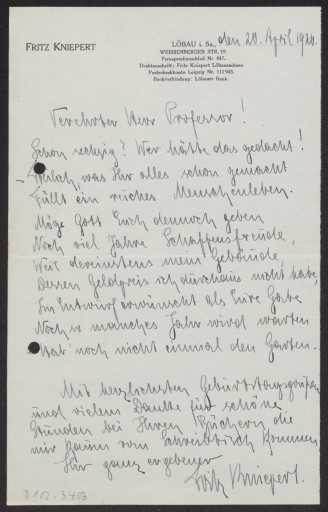 FRITZ KNIEPERT
LÖBAU i. Sa., den 20. April 1924.
WEISSENBERGER STR. 19.
Fernsprechanschluß Nr. 847.
Drahtanschrift: Fritz Kniepert Löbausachsen
Postscheckkonto Leipzig Nr. 111943.
Bankverbindung: Löbauer Bank.
Verehrter Herr Professor!
Schon sechzig? Wer hätte das gedacht!
was Ihr alles schon gemacht
Füllt ein reiches Menschenleben.
Möge Gott Euch dennoch geben
Noch viel Jahre Schaffensfreude,
Weil dereinstens mein Gebäude,
Dessen Geldpreis ich durchaus nicht habe,
Im Entwurf erwünscht als Eure Gabe
Noch so manches Jahr wird warten
Hab' noch nicht einmal den Garten.
Mit herzlichsten Geburtstagsgrüßen
und vielem Danke für schöne
Stunden bei Ihren Büchern die
mir kaum vom Schreibtisch kommen
Ihr ganz ergebener
Fritz Kniepert.